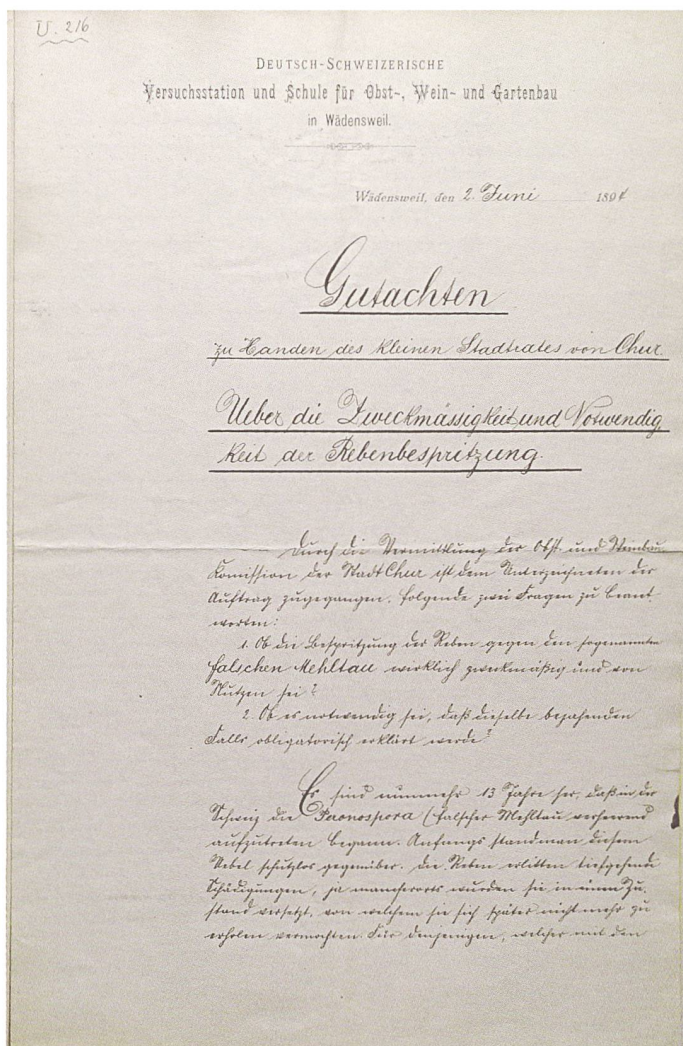 U. 216
DEUTSCH-SCHWEIZERISCHE
Versuchsstation und Schule für Obst-, Wein- und Gartenbau
in Wädensweil.
Wädensweil, den 2. Juni 1894
Gutachten
zu Handen des kleinen Stadtrates von Chur.
Ueber die Zweckmässigkeit und Notwendig
keit der Rebenbespritzung.
Durch die Vermittlung der Obst- und Weinbau
Komission der Stadt Chur ist dem Unterzeichneten der
Auftrag zugegangen, folgende zwei Fragen zu beant
worten:
1. Ob die Bespritzung der Reben gegen den sogenannten
falschen Mehltau wirklich zweckmäßig und von
Nutzen sei?
2. Ob es notwendig sei, daß dieselbe bejahenden
Falls obligatorisch erklärt werde?
Es sind nunmehr 13 Jahre her, daß in der
Schweiz die Paonospora (falscher Mehltau verheerend
aufzutreten begann. Anfangs stand man diesem
Uebel schutzlos gegenüber. Die Reben erlitten tiefgehende
Schädigungen, ja mancherorts wurden sie in einen Zu-
stand versetzt, von welchem sie sich später nicht mehr zu
erholen vermochten. Für denjenigen, welcher mit den